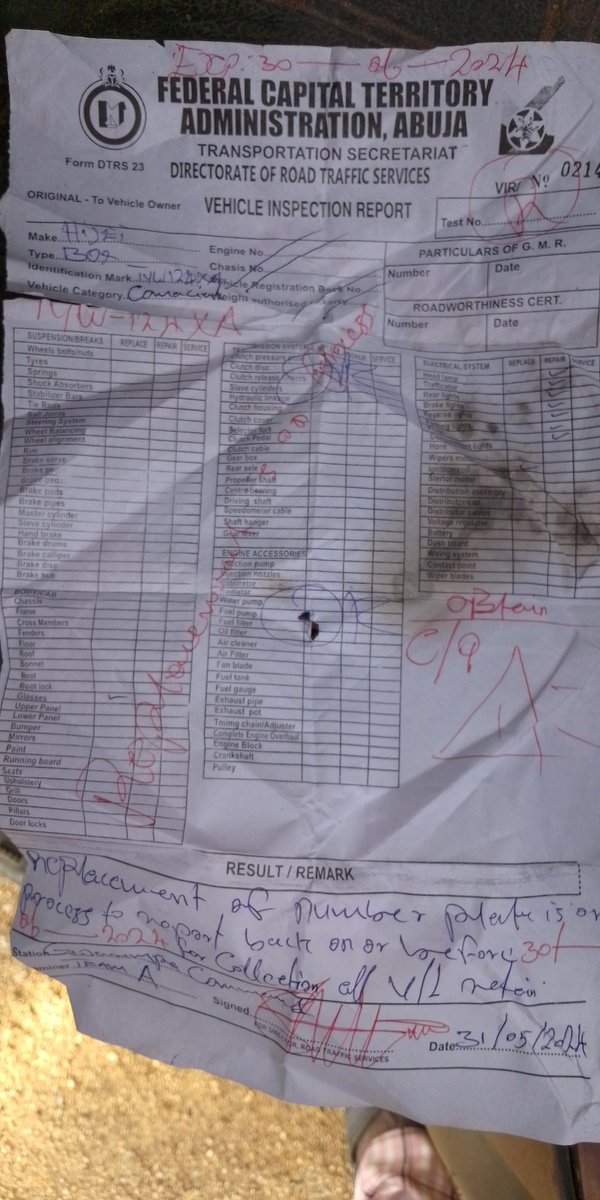 EXP: 30 — 06 — 2024
FEDERAL CAPITAL TERRITORY
ADMINISTRATION, ABUJA
TRANSPORTATION SECRETARIAT
Form DTRS 23
DIRECTORATE OF ROAD TRAFFIC SERVICES
VIR/ No 0214
ORIGINAL - To Vehicle Owner
VEHICLE INSPECTION REPORT
Test No
Make
Engine No
PARTICULARS OF G. M. R.
Type
Chasis No
Number Date
Identification Mark
Vehicle Registration Book No
Vehicle Category
ROADWORTHINESS CERT.
Number Date
SUSPENSION/BREAKS REPLACE REPAIR SERVICE
Wheels bolts/nuts
Tyres
Springs
Shock Absorbers
Stabilizer Bars
Tie Rods
Ball Joints
Steering System
Wheel Balancing
Wheel alignment
Rim
Brake servo
Brake ped
Brake pads
Brake pipes
Master cylinder
Slave cylinder
Hand brake
Brake drums
Brake calliper
Brake disc
Brake hub
BODY/CAB
Chassis
Frame
Cross Members
Fenders
Floor
Roof
Bonnet
Boot
Boot lock
Glasses
Upper Panel
Lower Panel
Bumper
Mirrors
Paint
Running board
Seats
Upholstery
Grill
Doors
Pillars
Door locks
REPAIR SERVICE
Clutch pressure
Clutch disc
Clutch release
Slave cylinders
Hydraulic linkage
Clutch housing
Clutch cover
Selector fork
Clutch Pedal
Clutch cable
Gear box
Rear axle
Propeller shaft
Centre bearing
Driving shaft
Speedometer cable
Shaft hanger
Gear lever
ENGINE ACCESSORIES
Injection pump
Injection nozzles
Radiator
Water pump
Fuel pump
Fuel filter
Oil filter
Air cleaner
Air Filter
Fan blade
Fuel tank
Fuel gauge
Exhaust pipe
Exhaust pot
Timing chain/Adjuster
Complete Engine Overhaul
Engine Block
Crankshaft
Pulley
ELECTRICAL SYSTEM REPLACE REPAIR SERVICE
Head lamp
Trafficator
Rear lights
Brake lights
Reverse lights
Horn
Wipers motor
Ignition coil
Stertor motor
Distribution assembly
Distribution cap
Distributor cables
Voltage regulator
Battery
Dash board
Wiring system
Contact point
Wiper blades
obtain
C/9
RESULT / REMARK
replacement of number plate is on
process to report back on or before 30
06 — 2024 for Collection all V/L
Station
TEAM A
Signed
FOR DIRECTOR, ROAD TRAFFIC SERVICES
Date 31/05/2024